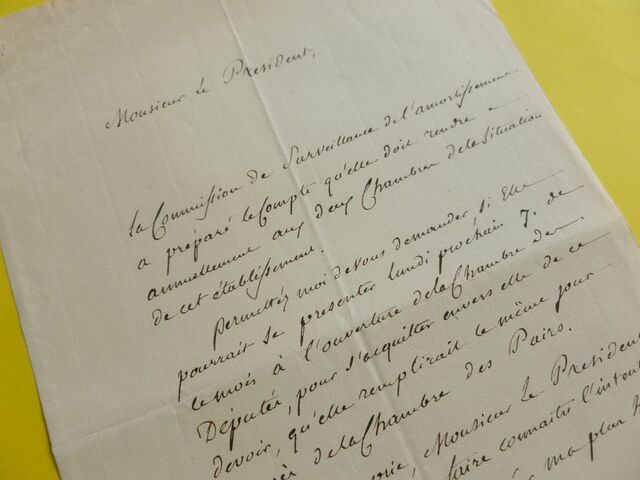 Monsieur le President,
la Commission de Surveillance de l'amortissement
a préparé le Compte qu'elle doit rendre
annuellement aux deux Chambres de la Situation
de cet établissement.
Permettez moi de Vous demander, si Elle
pourrait se presenter lundi prochain 7. de
ce mois à l'ouverture de la Chambre des
Députés, pour s'acquitter envers elle de ce
devoir, qu'elle remplirait le même jour
de la Chambre des Pairs.
Monsieur le President
faire connaitre l'
ma plus